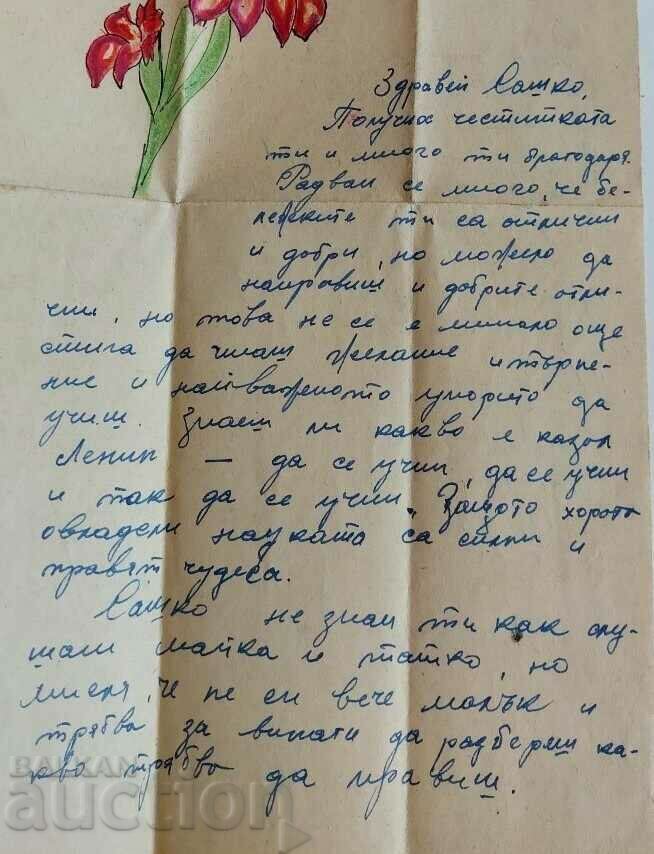 Здравей Сашко,
Получих честитката
ти и много ти благодаря.
Радвам се много, че бе-
лежките ти са отлични
и добри, но можело да
направиш и добрите отли-
чни, но това не се е минало още
стига да имаш желание и търпе-
ние и най-важеното упорито да
учиш. Знаеш ли какво е казал
Ленин — да се учим, да се учим
и пак да се учим. Защото хората
овладели науката са силни и
правят чудеса.
Сашко не знам ти как слу-
шаш майка и татко, но
мисля, че не си вече малък и
трябва за винаги да разбереш ка-
кво трябва да правиш.
БАЛКАН
auction